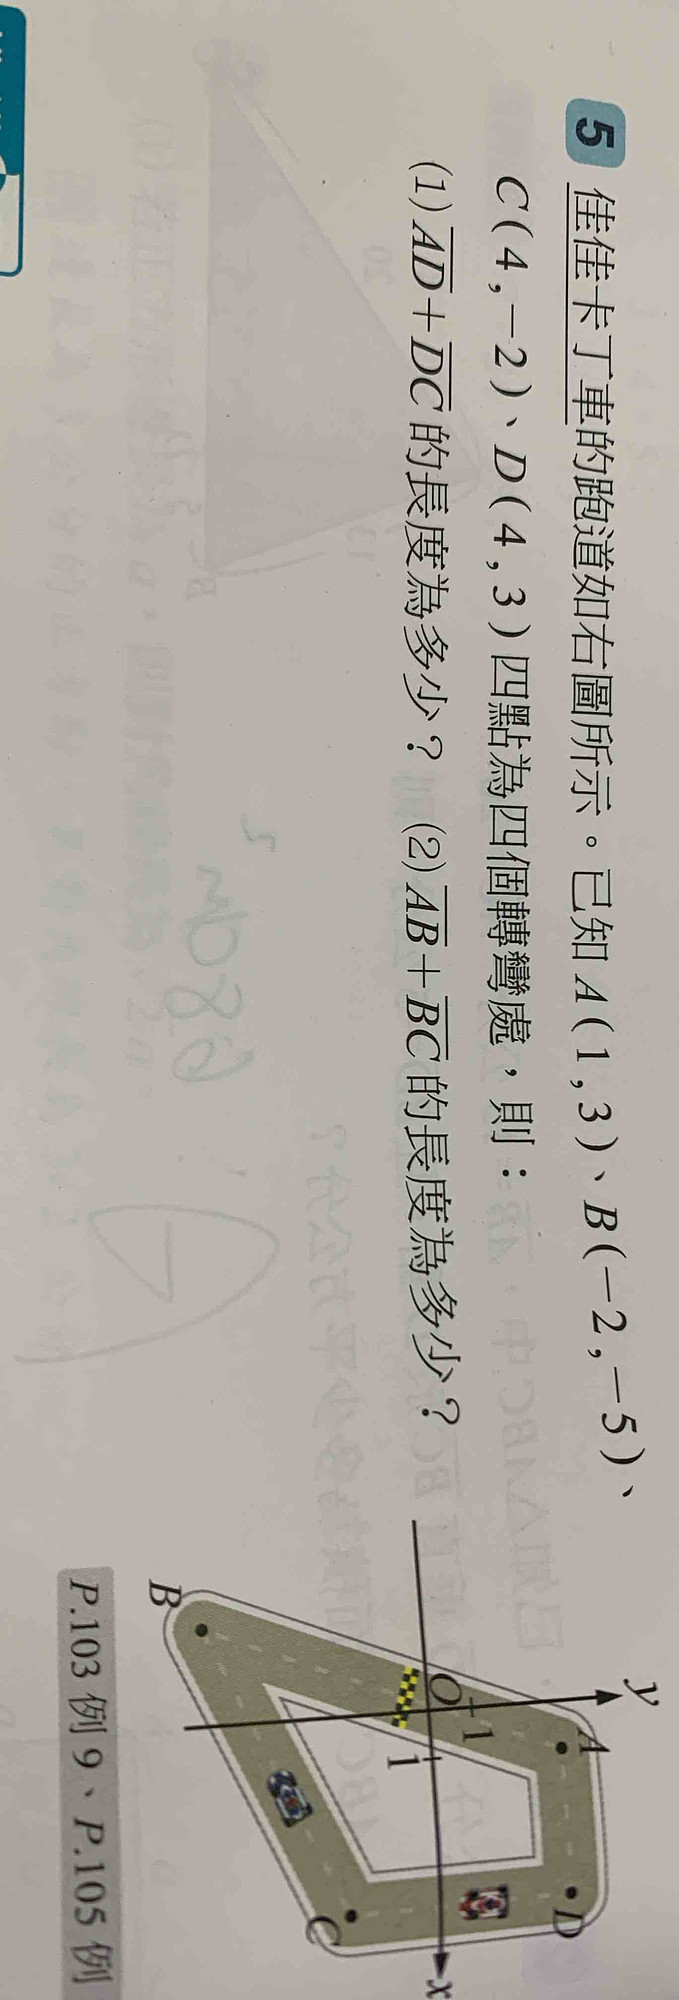 5 佳佳卡丁車的跑道如右圖所示。已知 A(1,3)、B(-2,-5)、
C(4,-2)、D(4,3)四點為四個轉彎處，則：
(1) AD+DC的長度為多少？ (2) AB+BC的長度為多少？
y
A
D
1
O
1
x
C
B
P.103 例 9、P.105 例